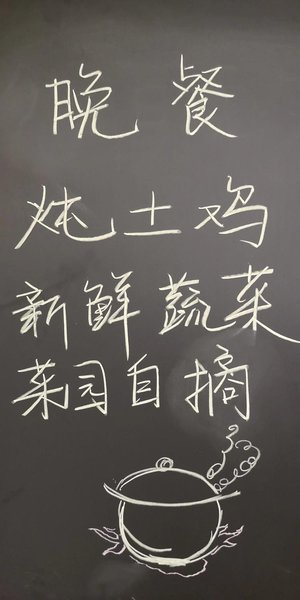 晚餐
炖土鸡
新鲜蔬菜
菜园自摘